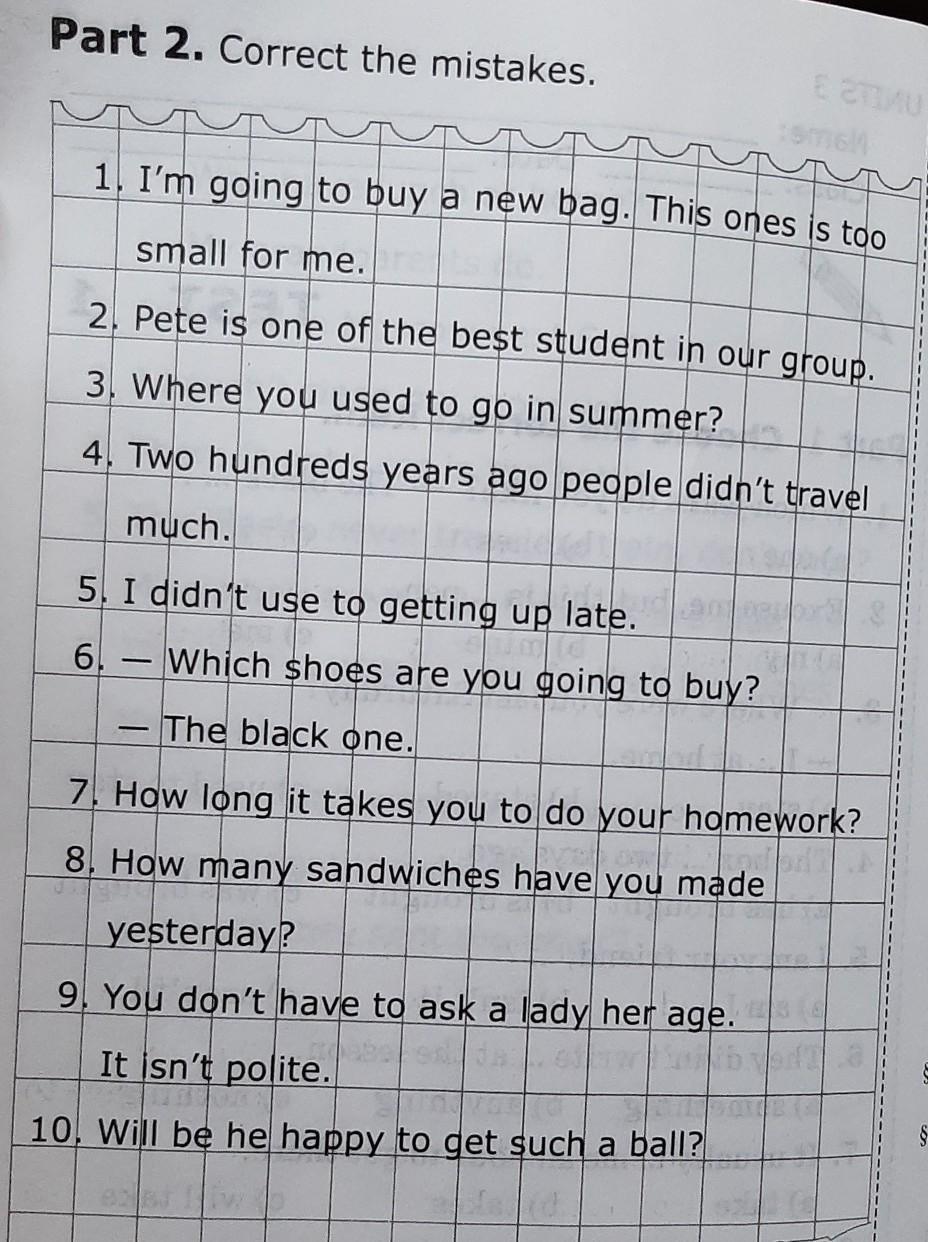 Part 2. Correct the mistakes.
1. I'm going to buy a new bag. This ones is too
small for me.
2. Pete is one of the best student in our group.
3. Where you used to go in summer?
4. Two hundreds years ago people didn't travel
much.
5. I didn't use to getting up late.
6. — Which shoes are you going to buy?
— The black one.
7. How long it takes you to do your homework?
8. How many sandwiches have you made
yesterday?
9. You don't have to ask a lady her age.
It isn't polite.
10. Will be he happy to get such a ball?